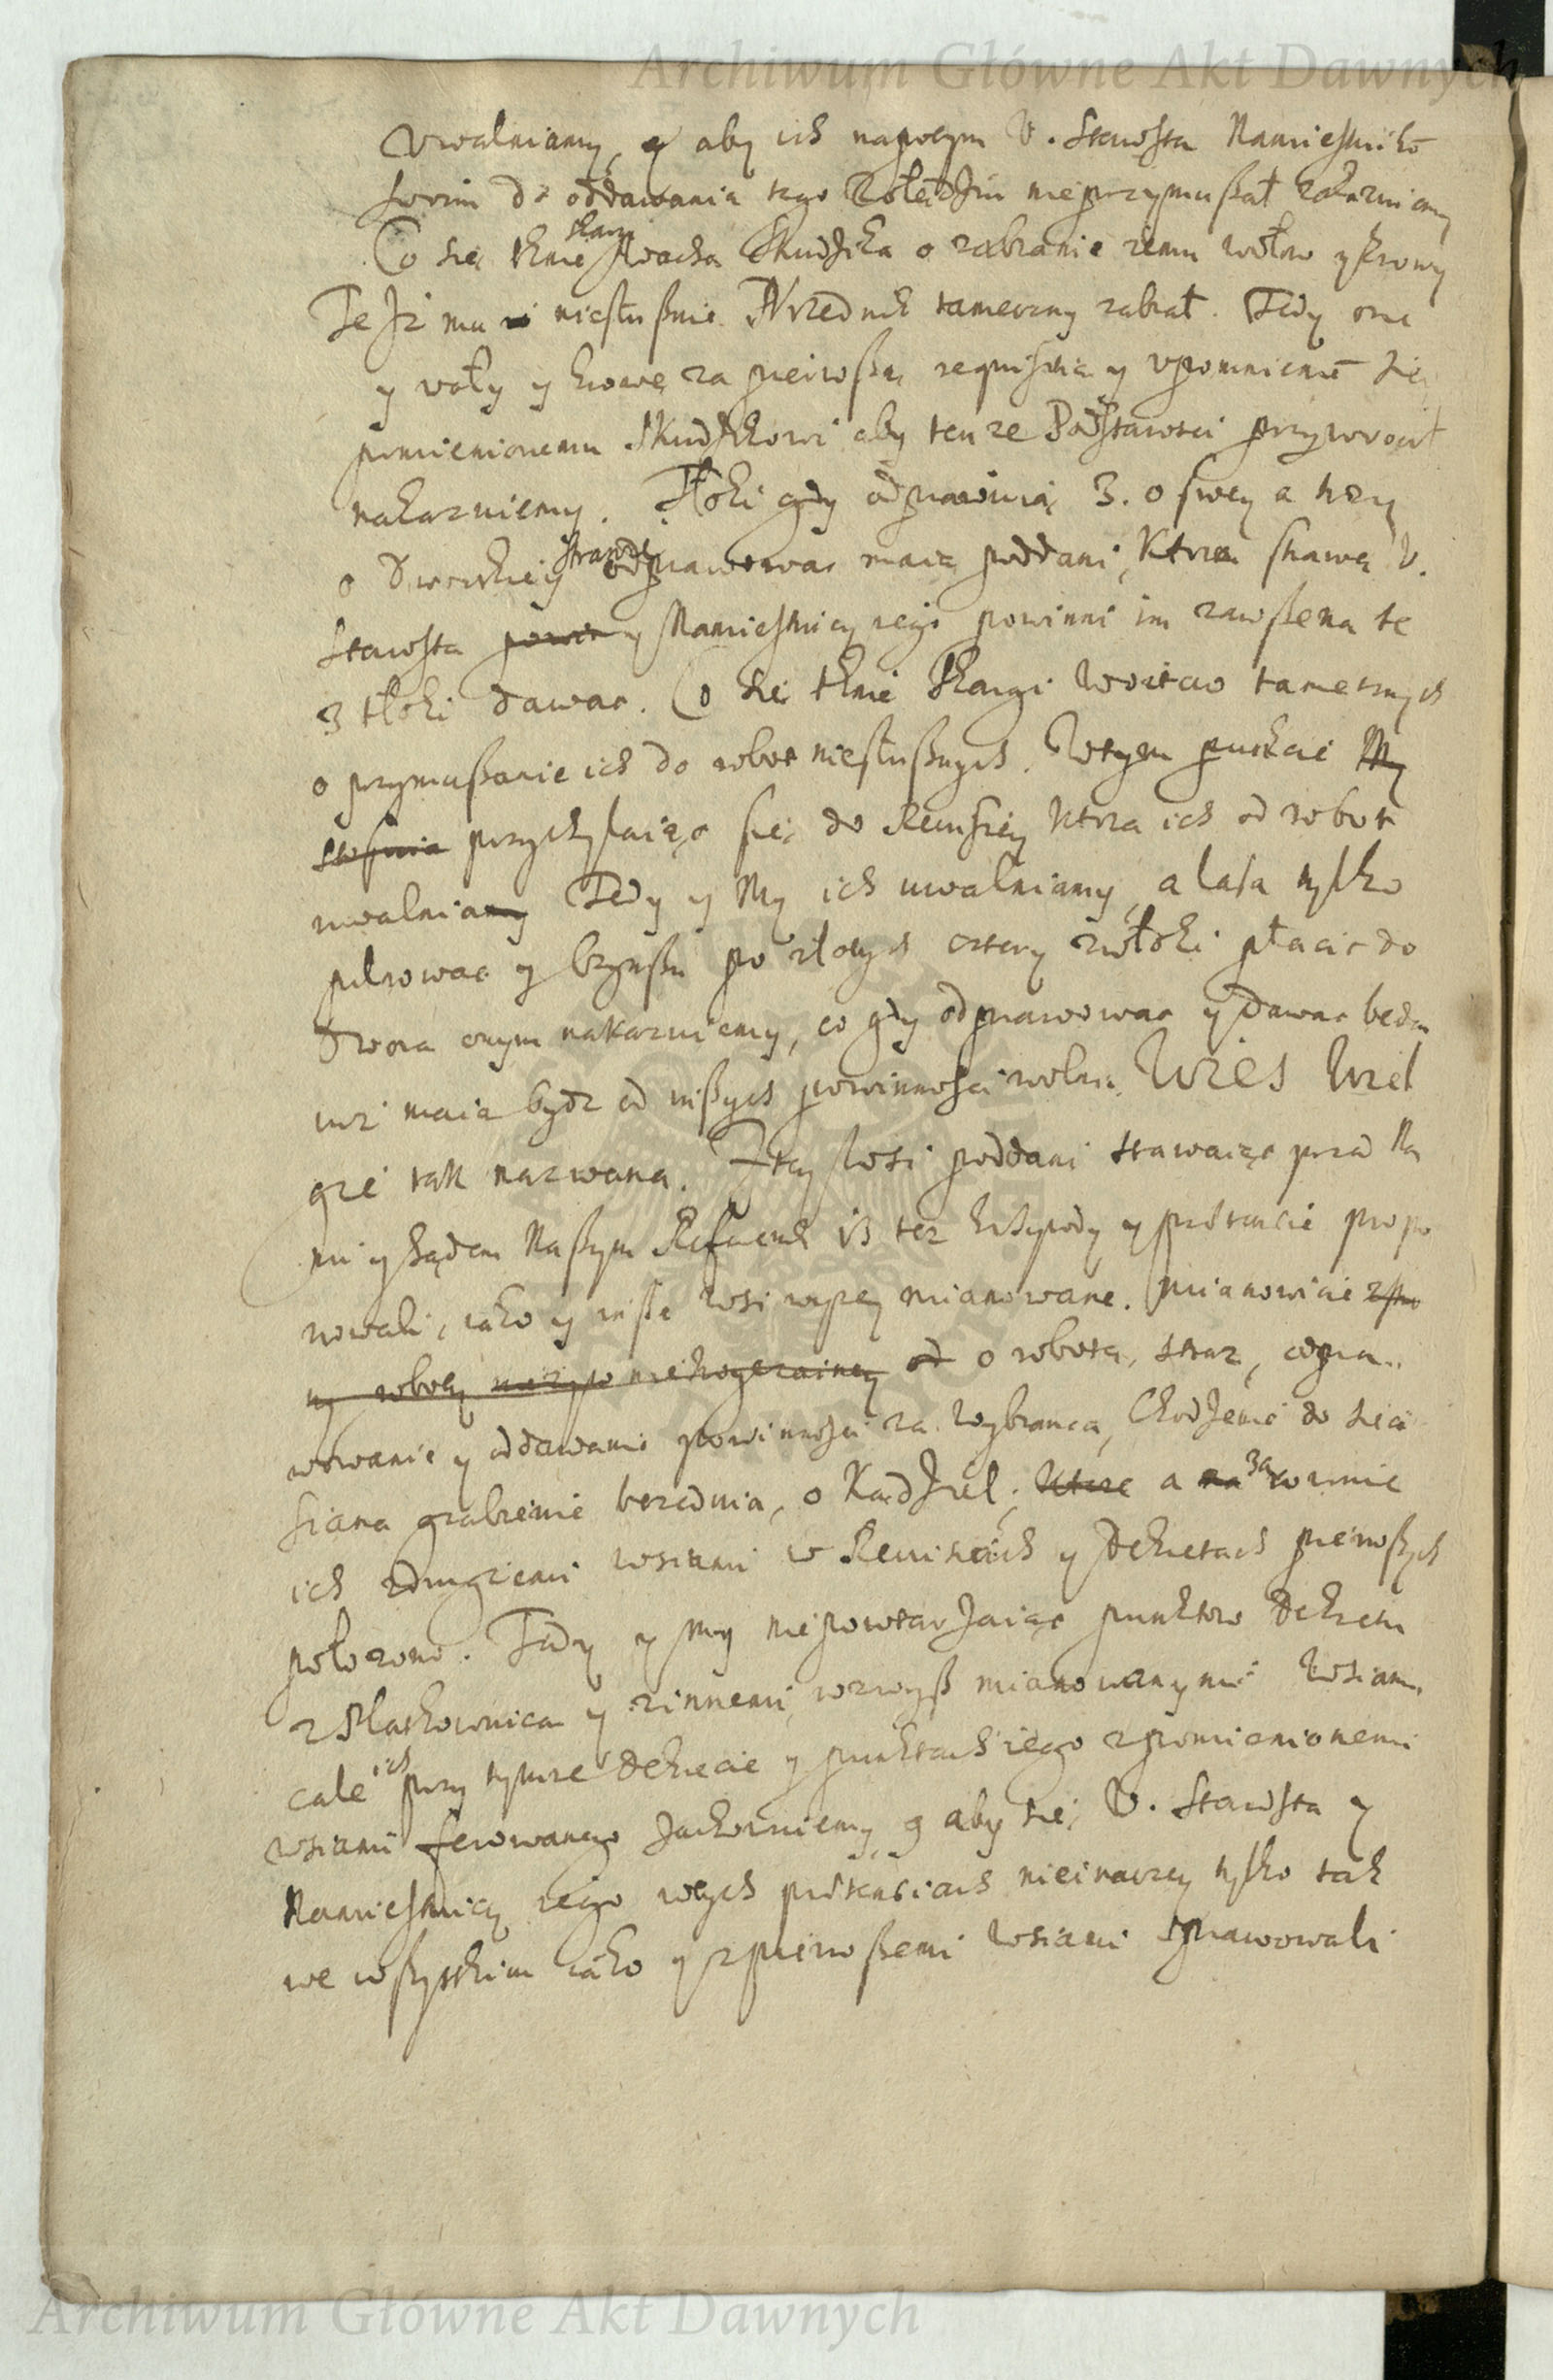 Archiwum Główne Akt Dawnych
Uwalniamy, y aby ich napotym U. Starosta Namiesnikō
swoim do oddawania tego nieprzymuszał zakazuiemy
Co się tknie skargi Skudzika o zabranie iemu wołow y krowy
Te Iz mu niesłusznie Urzednik tameczny zabrał. Tedy one
y woły y krowę za pierwszą requisitią y upomnieniē się
pomienionemu Skudzikowi aby tenze Podstarosci przywrocił
nakazuiemy. Tłoki gdy odprawuią 3. o swey a trzy
o Dworskiey strawie odprawować maią poddani, Ktorą strawę U.
Starosta powin y Namiesnicy iego powinni im zawsze na te
3 tłoki dawać. Co się tknie Skargi Woitow tamecznych
o przymuszanie ich do robot niesłusznych. W tym punkcie My
przychylaiąc się do Rewisiey Ktora ich od robot
uwalnia Tedy y My ich uwalniamy, a lasa tylko
pilnować y czynszu po złotych cztery z włoki płacić do
Dwora onym nakazuiemy, co gdy odprawować y dawać będą
iuz maią bydz od inszych powinnosci wolni. Wies Wiel
gie tak nazwana. Z tey wsi poddani stawaiąc przed Na
mi y Sądem Naszym Refferend iz tez krzywdy y praetensie propo
nowali, iako y insze wsi wyzey mianowane. Mianowicie
roboty od o robotę, straz, odpra
wowanie y oddawanie powinnosci za Wybranca, Chodzenie do sieci
siana grabienie bezednia, o Kądziel, Ktore a na za rownie
ich z drugiemi wsiami w Rewisiach y Dekretach pierwszych
połozono. Tedy y My niepowtarzaiąc punktow Dekretu
z y z innemi wzwysz mianowanymi Wsiami
cale ich przy tymze Dekrecie y punktach iego z pomienionemi
wsiami ferowanego zachowuiemy y aby się U. Starosta y
Namiesnicy iego w tych praetensiach nieinaczey tylko tak
we wszystkim iako y z pierwszemi Wsiami sprawowali
Archiwum Główne Akt Dawnych